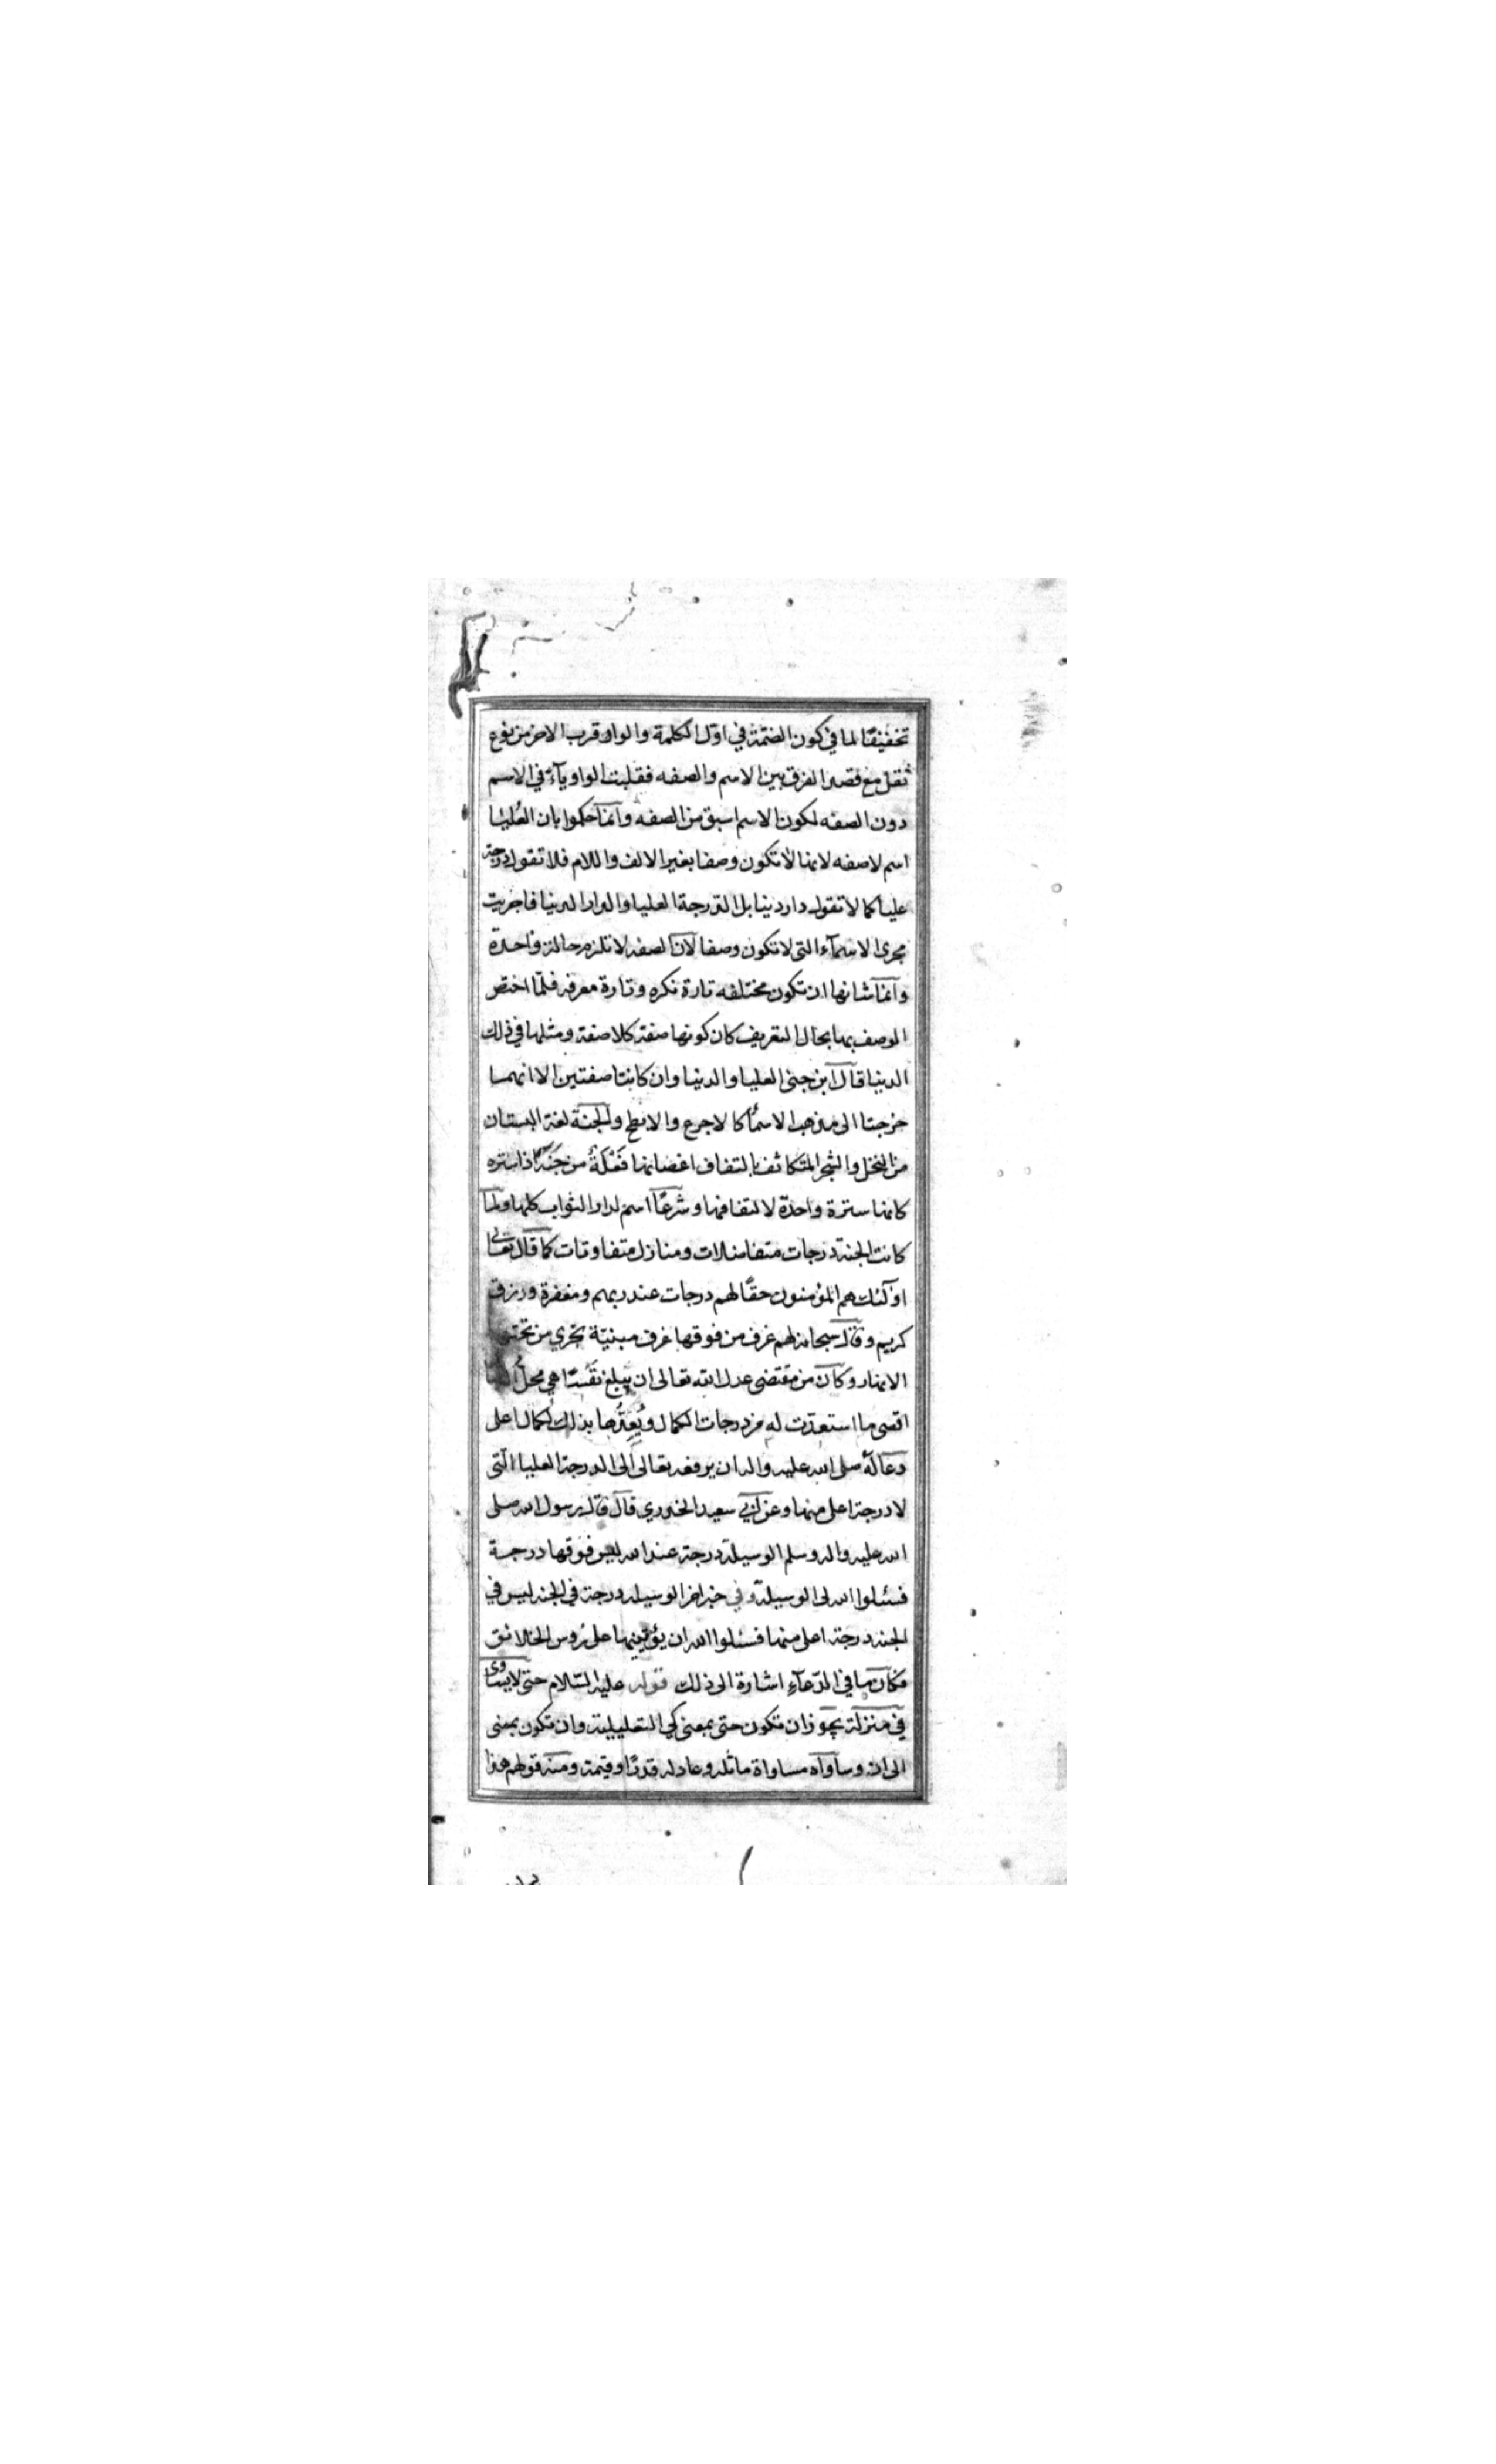 تخفيفًا لما في كون الضمّة في اوّل الكلمة والواو قرب الاخر من نوع
ثقل مع قصد الفرق بين الاسم والصفه فقلبت الواو يآءً في الاسم
دون الصفه لكون الاسم اسبق من الصفه وانمآ حكموا بان العُليٰا
اسم لا صفه لانها لا تكون وصفا بغير الالف واللام فلا تقول درجة
عليا كما لا تقول دار دنيا بل الدّرجة العليا والدار الدنيا فاجريت
مجرى الاسمآء التى لا تكون وصفا لان الصفه لا تلزم حالة واحدة
وانمآ شانها ان تكون مختلفه تارة نكره وتارة معرفه فلمّا اختص
الوصف بها بحال التعريف كان كونها صفة كلا صفة ومثلها في ذلك
الدنيا قال ابن جنى العليا والدنيا وان كانتا صفتين الا انهمــا
خرجتا الى مذهب الاسمآء كالاجرع والابطح والجنة لغة البستان
من النخل والشجر المتكاثف بالتفاف اغصانها فَعْلَةٌ من جَنَّه اذا ستره
كانها سترة واحدة لالتفافها وشرعًا اسم لدار الثواب كلها ولما
كانت الجنة درجات متفاضلات ومنازل متفاوتات كما قال تعالى
اولٓئك هم المؤمنون حقّا لهم درجات عند ربهم ومغفرة ورزق
كريم وقال سبحانه لهم غرف من فوقها غرف مبنيّة تجري من تحتها
الانهار وكان من مقتضى عدل الله تعالى ان يبلغ نفسًا هي محل
اقصى ما استعدّت له من درجات الكمال ويُعِدُّها بذلك لكمال اعلى
دعا له صلى الله عليه واله ان يرفعه تعالى الى الدرجة العليا الّتى
لا درجة اعلى منها وعن ابي سعيد الخدري قال قال رسول الله صلى
الله عليه واله وسلم الوسيلة درجة عند الله ليس فوقها درجــة
فسئلوا الله لى الوسيلة وفي خبر اخر الوسيله درجة في الجنه ليس في
الجنه درجة اعلى منها فسئلوا الله ان يؤتينها على رُوس الخلائق
فكان ما في الدّعآءِ اشارة الى ذلك قوله عليه السّلام حتى لا يساوى
في منزلة يجوز ان تكون حتى بمعنى كي التعليلية وان تكون بمعنى
الى ان وساواه مساواة ماثله وعادله قدرًا وقيمة ومنه قولهم هذا